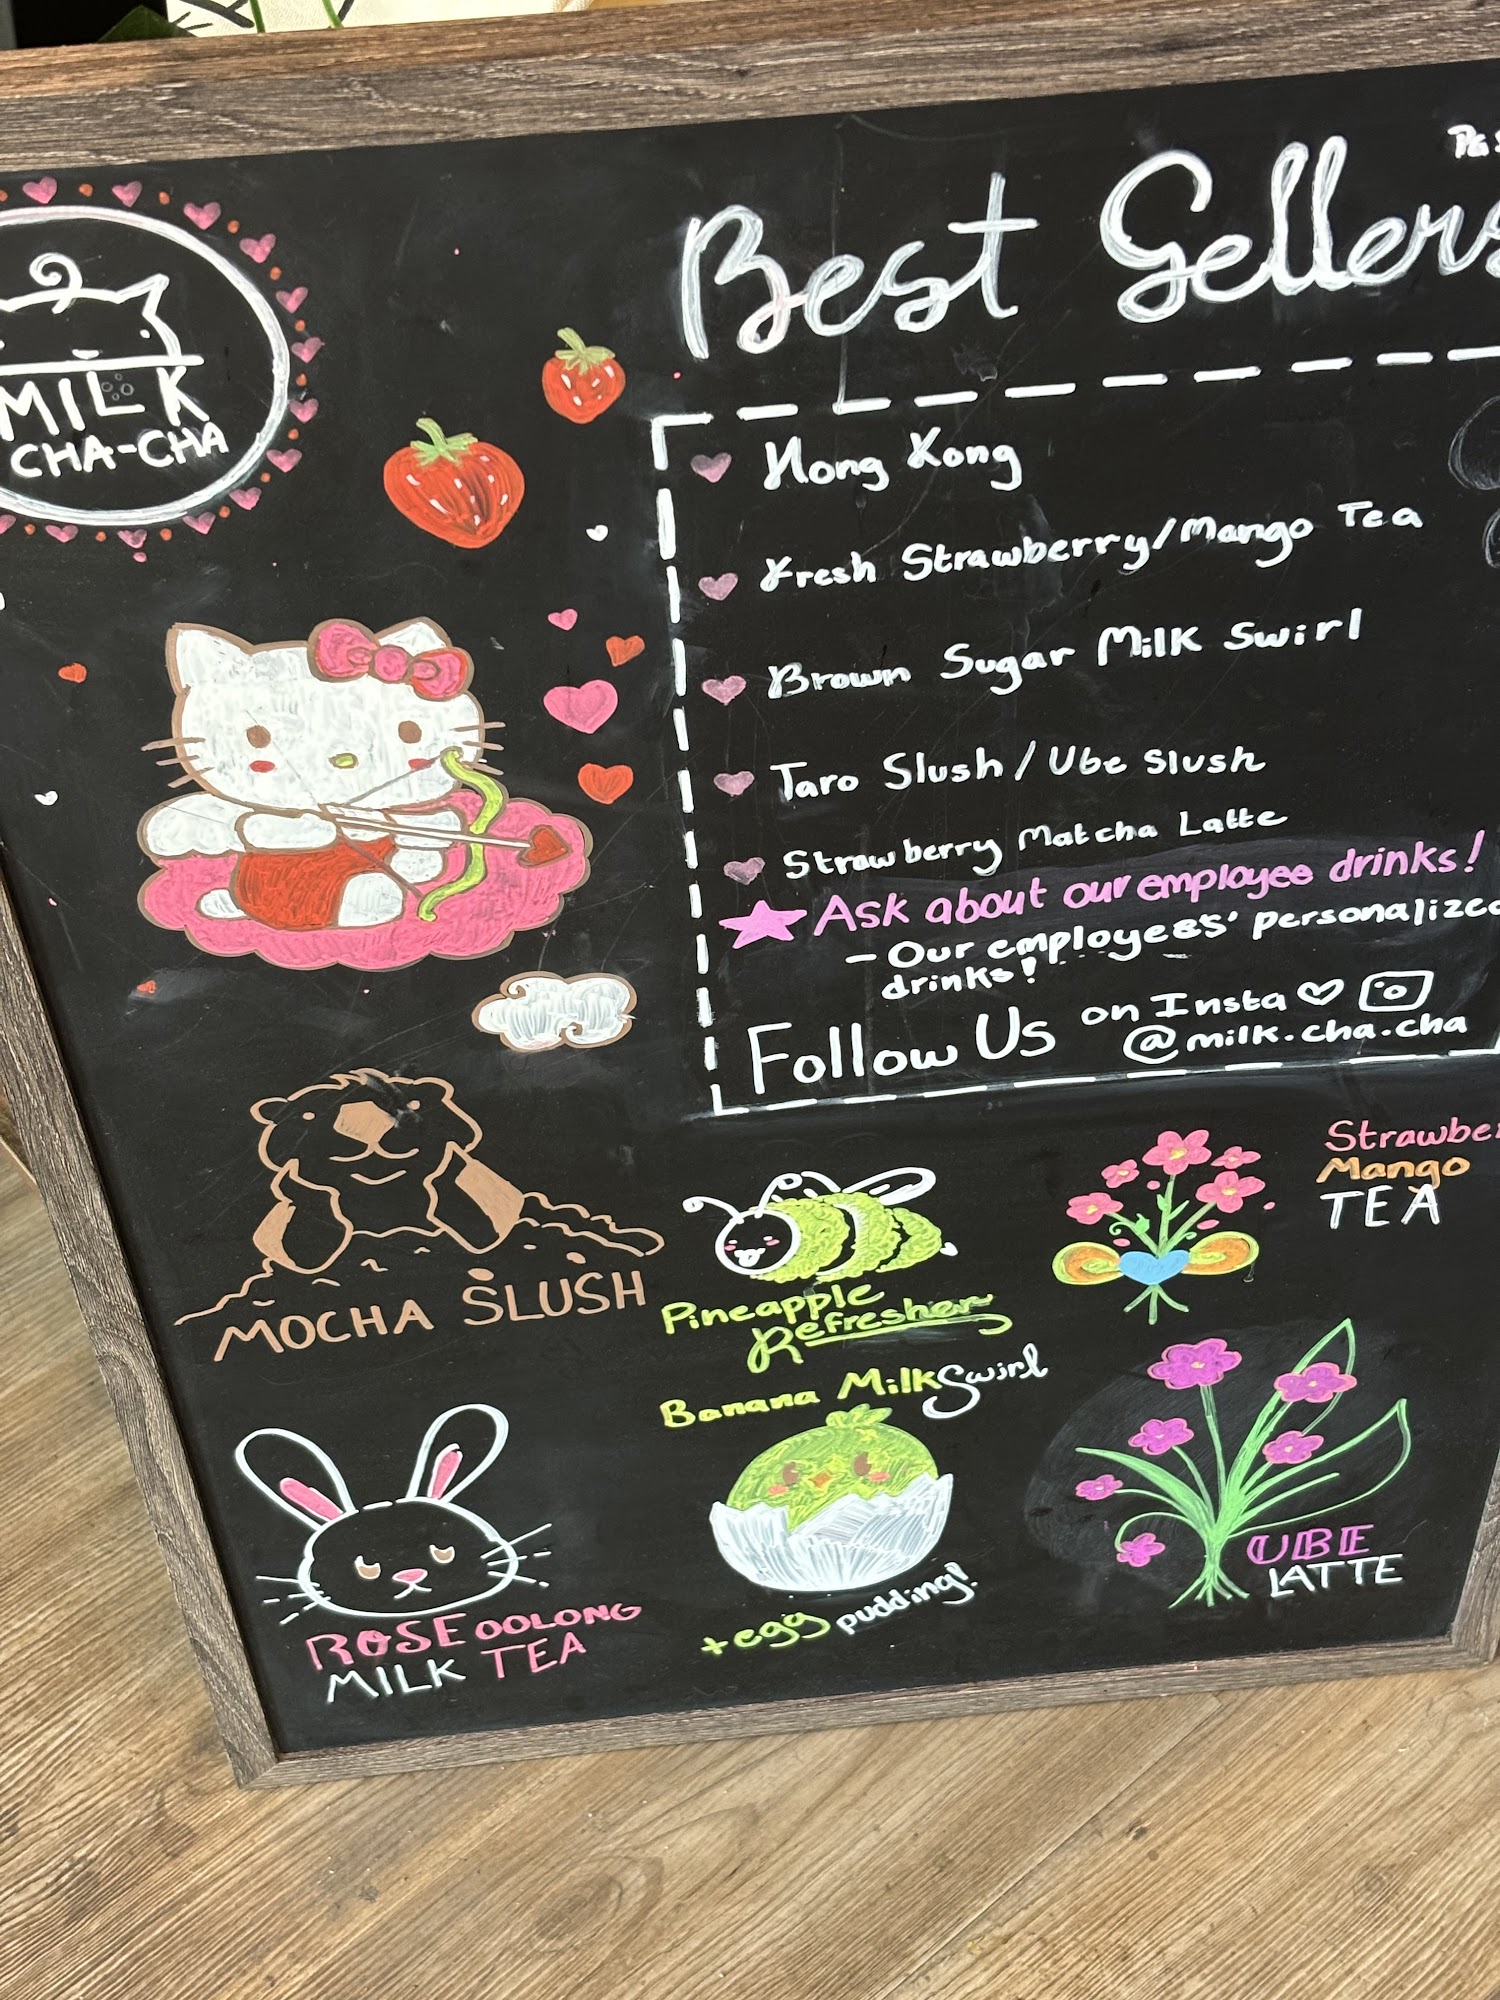 MILK
CHA-CHA
Best Sellers
Hong Kong
Fresh Strawberry/Mango Tea
Brown Sugar Milk Swirl
Taro Slush/Ube Slush
Strawberry Matcha Latte
Ask about our employee drinks!
- Our employees' personalized
drinks!
Follow Us on Insta
@milk.cha.cha
MOCHA SLUSH
Pineapple
Refresher
Mango
TEA
Banana Milk Swirl
+egg pudding!
ROSE OOLONG
MILK TEA
UBE
LATTE